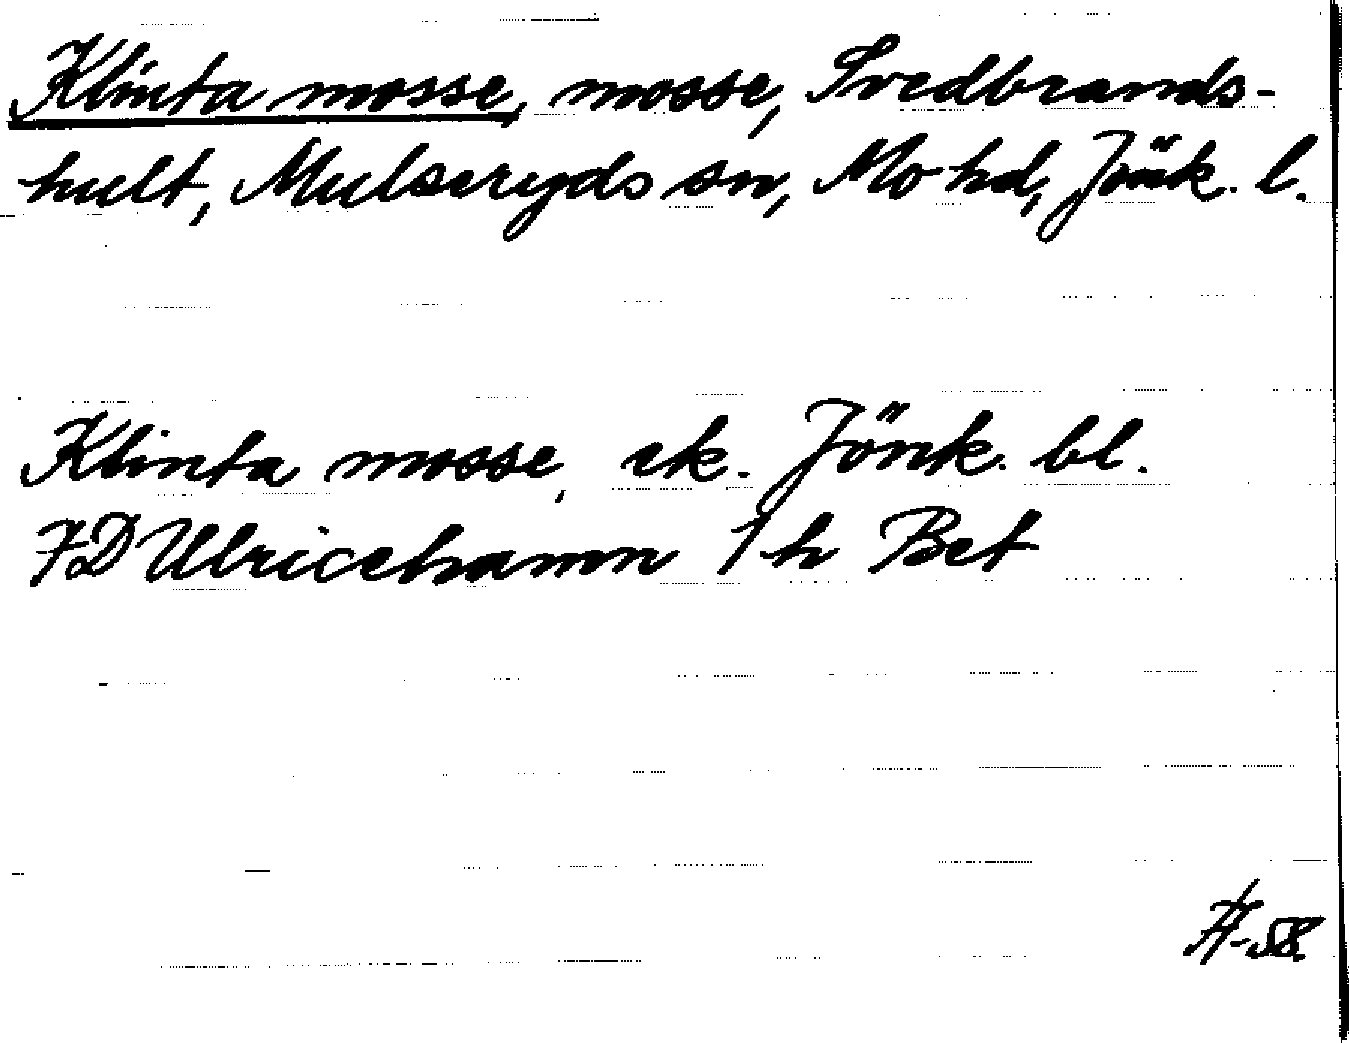 Klinta mosse, mosse, Svedbrands-
hult, Mulseryds sn, Mo hd, Jönk. l.
Klinta mosse, ek. Jönk. bl.
FD Ulricehamn 1 h Bet
-58.